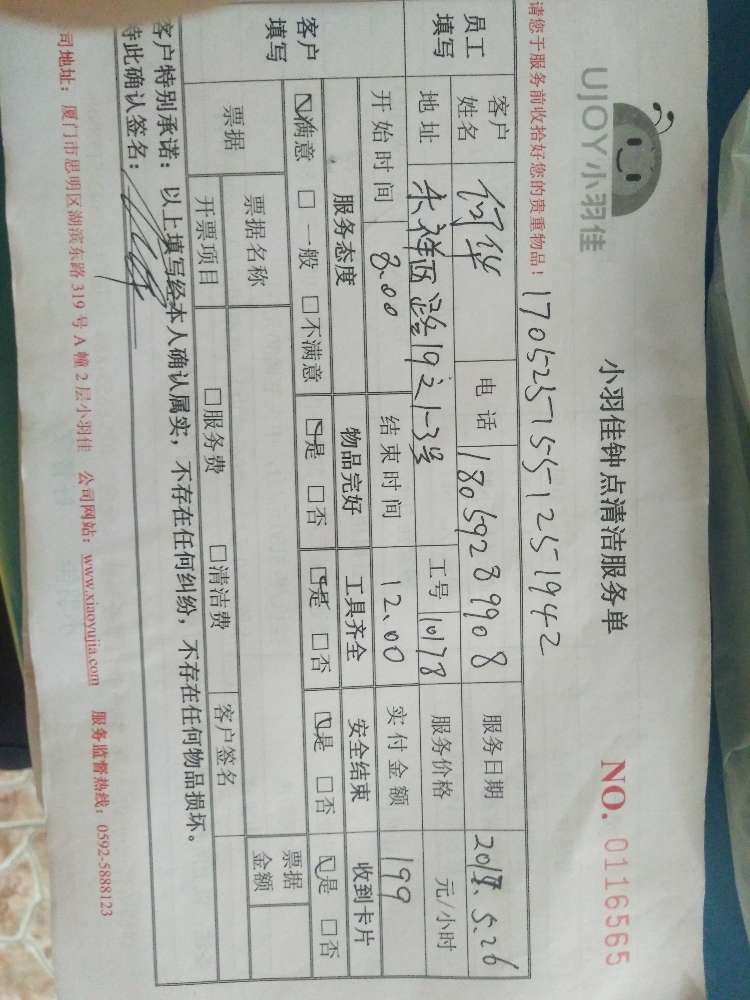 UJOY小羽佳
小羽佳钟点清洁服务单
NO. 0116565
请您于服务前收拾好您的贵重物品！
1705251551251942
员工填写 客户姓名 何华 电话 18059289908 服务日期 5.26
地址 禾祥西路19之1-3号 工号 10178 服务价格 元/小时
开始时间 8.00 结束时间 12.00 实付金额 199
客户填写 服务态度 物品完好 工具齐全 安全结束 收到卡片
☑满意 □一般 □不满意 ☑是 □否 ☑是 □否 ☑是 □否 ☑是 □否
票据 票据名称 票据金额
开票项目 □服务费 □清洁费 客户签名
客户特别承诺：以上填写经本人确认属实，不存在任何纠纷，不存在任何物品损坏。
特此确认签名：
司地址：厦门市思明区湖滨东路 319 号 A 幢 2 层小羽佳 公司网站：www.xiaoyujia.com 服务监督热线：0592-5888123